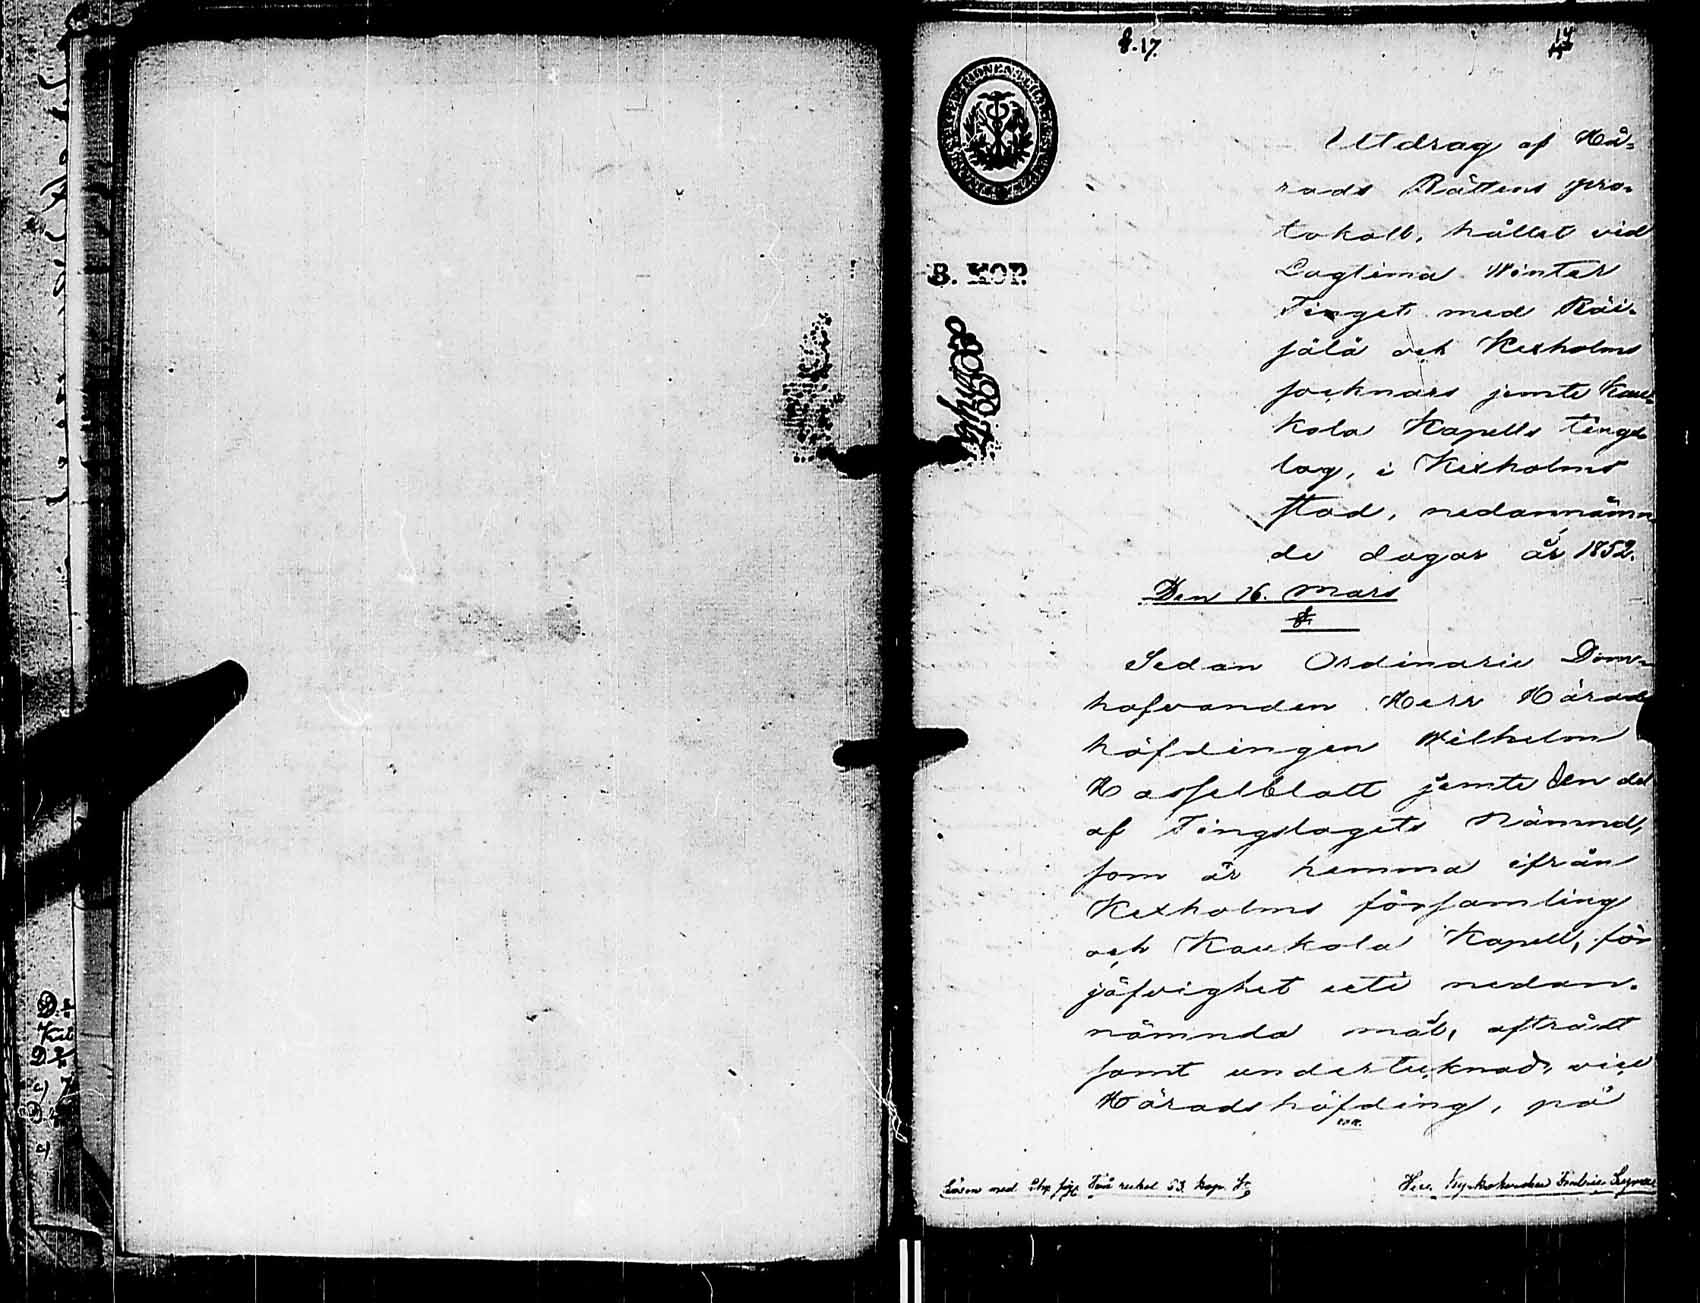 §.17.
17
8. KOP.
Utdrag af Hä-
rads Rättens pro-
tokoll, hållet vid
Lagtima Winter
Tinget med Räi-
sälä och Kexholms
socknars jemte Kau-
kola Kapells tings-
lag, i Kexholms
stad, nedannämn
de dagar år 1852.
Den 16. Mars
§.
Sedan Ordinarie Dom-
hafvanden Herr Härads
höfdingen Wilhelm
Hasselblatt jemte den del
af Tingslagets Nämnd,
som är hemma ifrån
Kexholms församling
och Kaukola Kapell, för
jäfvighet uti nedan-
nämnda mål, afträdt
samt undertecknad, vice
Häradshöfding, på
Lösen med Två rubel 53 kop. Sr